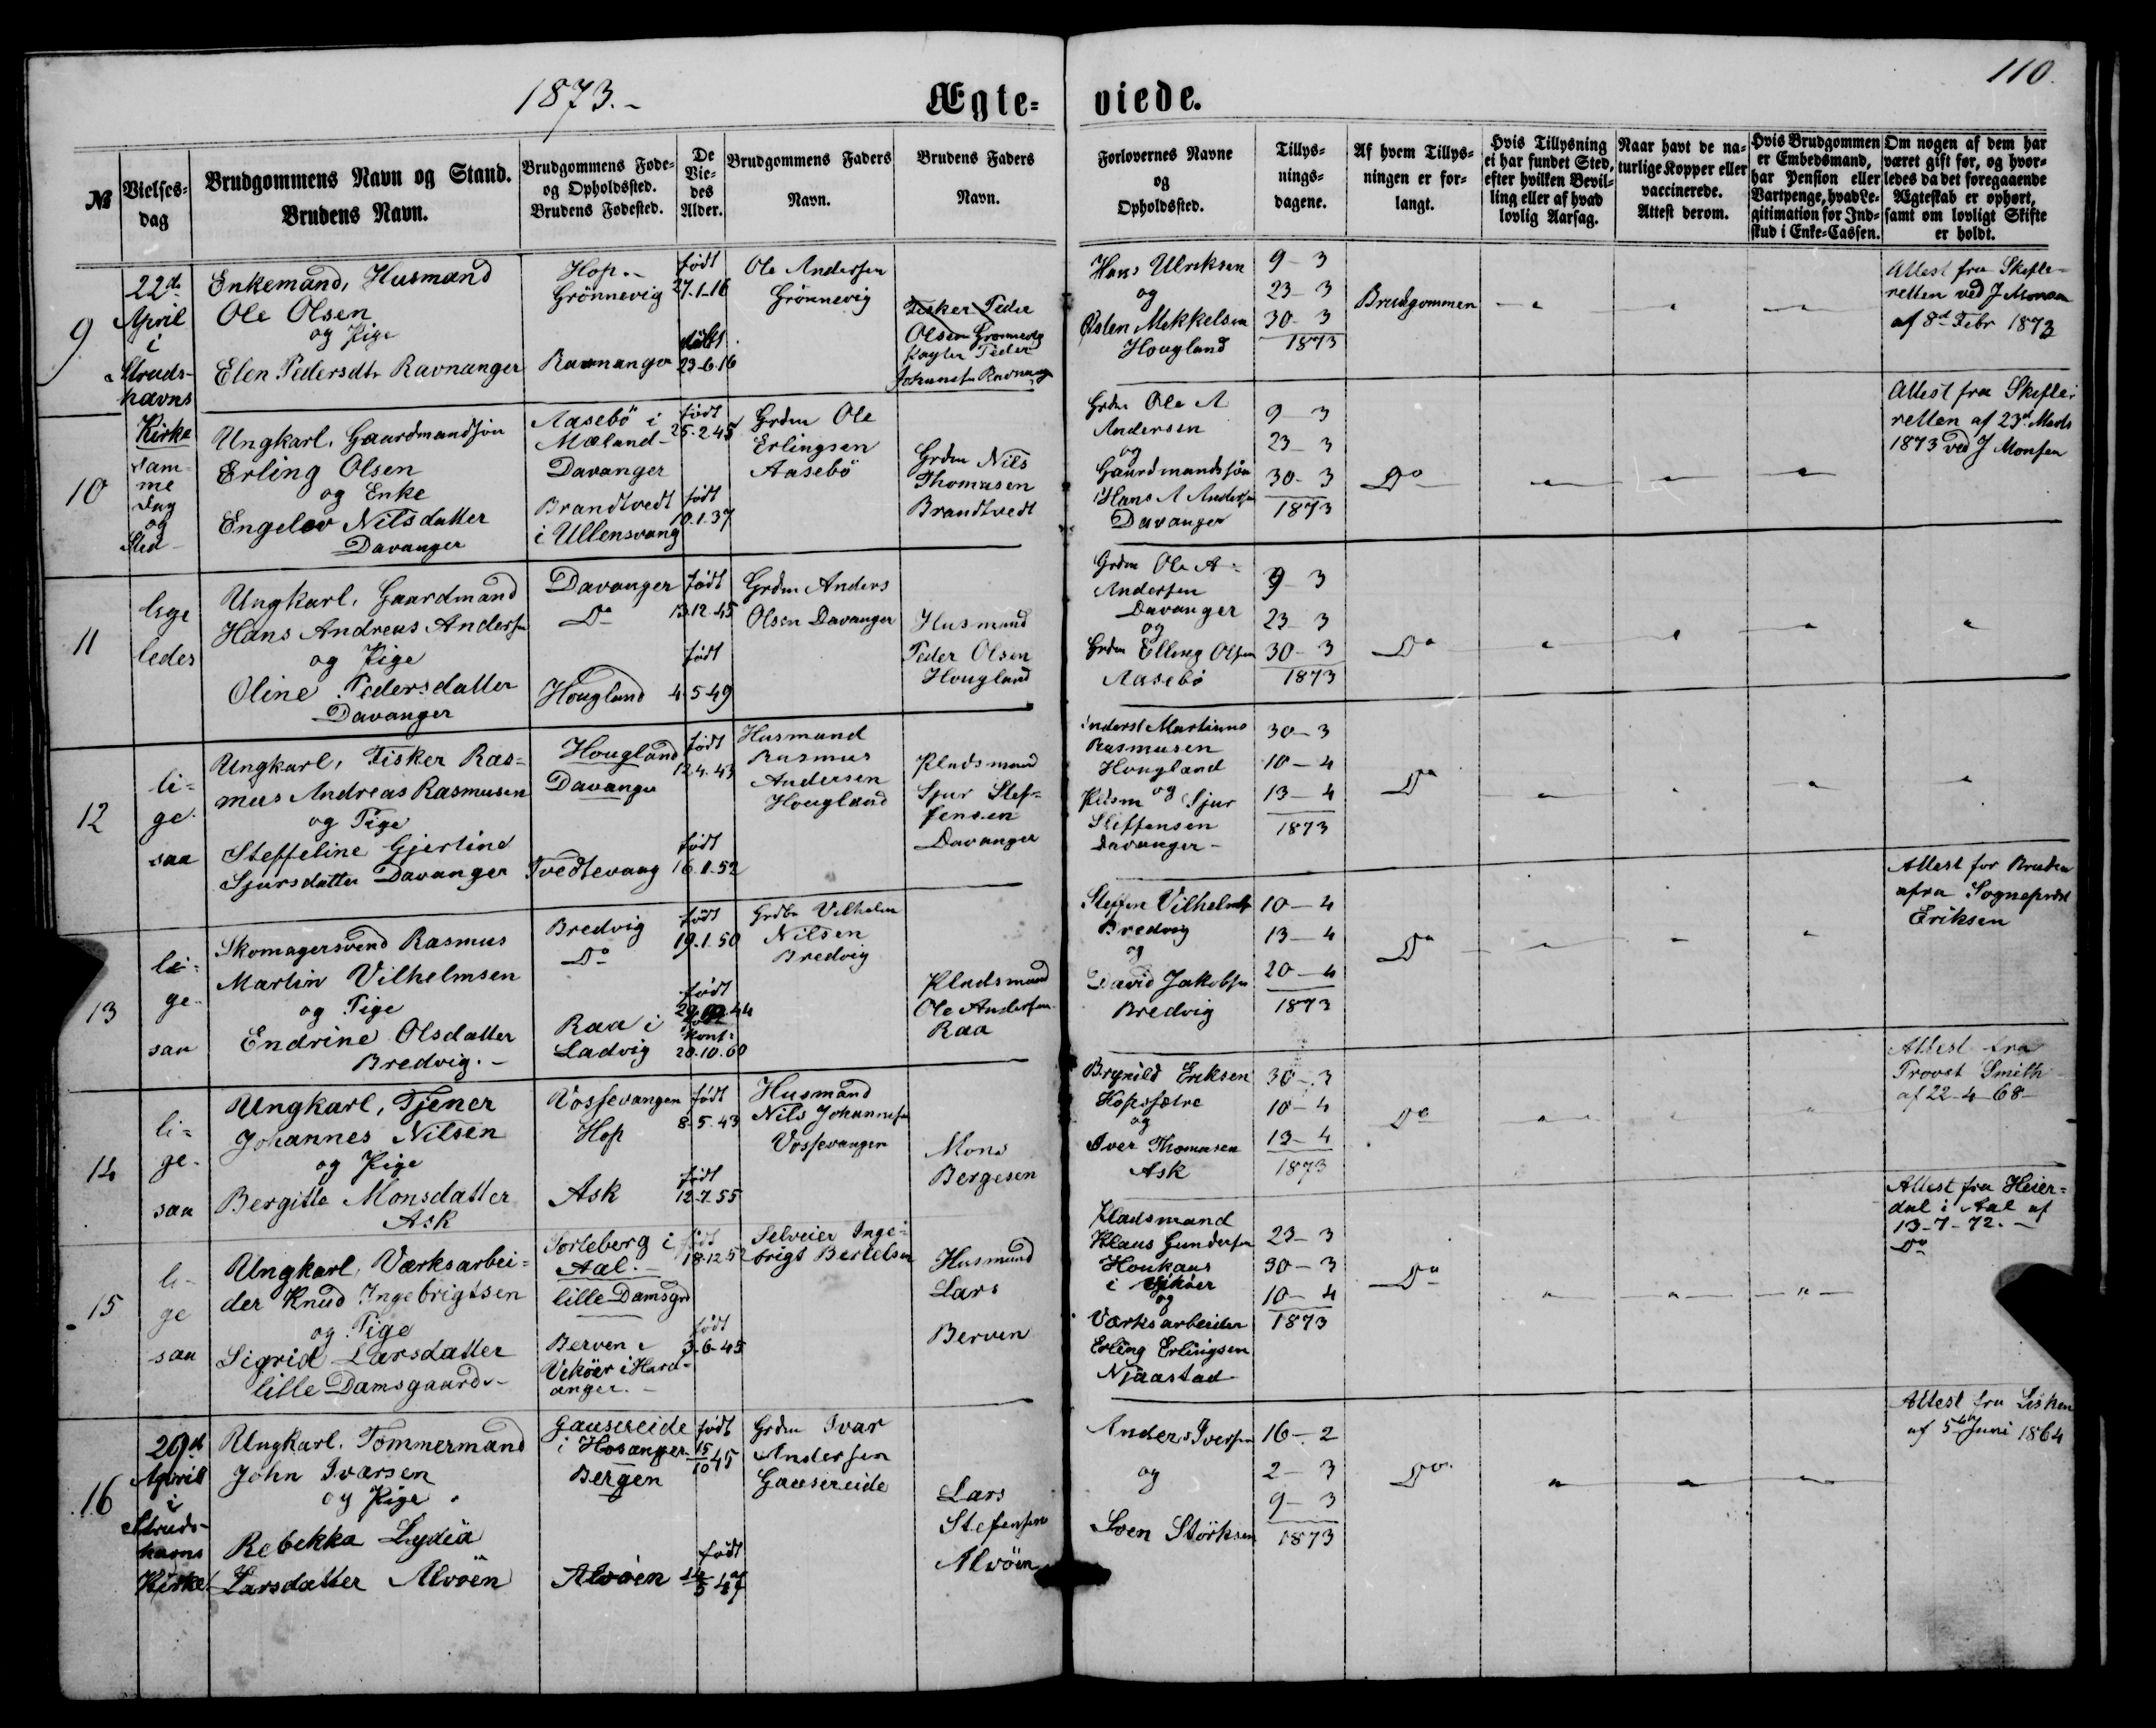 1873.-
Ægte-
viede.
110.
№
Vielses-
dag
Brudgommens Navn og Stand.
Brudens Navn.
Brudgommens Føde-
og Opholdssted.
Brudens Fødested.
De
Vie-
des
Alder.
Brudgommens Faders
Navn.
Brudens Faders
Navn.
Forlovernes Navne
og
Opholdssted.
Tillys-
nings-
dagene.
Af hvem Tillys-
ningen er for-
langt.
Hvis Tillysning
ei har fundet Sted,
efter hvilken Bevil-
ling eller af hvad
lovlig Aarsag.
Naar havt de na-
turlige Kopper eller
vaccinerede.
Attest derom.
Hvis Brudgommen
er Embedsmand,
har Pension eller
Vartpenge, hvad Le-
gitimation for Ind-
skud i Enke-Cassen.
Om nogen af dem har
været gift før, og hvor-
ledes da det foregaaende
Ægteskab er ophørt,
samt om lovligt Skifte
er holdt.
9
22de
April
i
Struds-
havns
Kirke
Enkemand, Husmand
Ole Olsen
og Pige
Elen Pedersdtr Ravnanger
Hop.-
Grönnevig
Ravnanger
født
27.1.16
født
23-6.16
Ole Andersen
Grönnevig
Fisker Peder
Olsen Grønnevig
Peder
Johansen Ravnang
Hans Ulriksen
og
Østen Mekkelsen
Hougland
9-3
23-3
30-3
1873
Brudgommen
Attest fra Skifte-
retten ved J Monsen
af 8d Febr 1873
10
Sam-
me
Dag
og
Sted
Ungkarl. Gaardmandsøn
Erling Olsen
og Enke
Engelev Nilsdatter
Davanger
Aasebö i
Mæland-
Davanger
Brandtvedt
i Ullensvang
født
25.2.45
født
10.1.37
Grdm Ole
Erlingsen
Aasebö
Grdm Nils
Thomasen
Brandtvedt
Grdm Ole A
Andersen
og
Gaardmandssøn
Hans A Andersen
Davanger
9-3
23-3
30-3
1873
Do
Attest fra Skifte-
retten af 23d Marts
1873 ved J Monsen
11
lige
ledes
Ungkarl, Gaardmand
Hans Andreas Andersen
og Pige
Oline Pedersdatter
Davanger
Davanger
Do
Hougland
født
13.12.45
født
4-5-49
Grdm Anders
Olsen Davanger
Husmand
Peder Olsen
Hougland
Grdm Ole A-
Andersen
Davanger
og
Grdm Elling Olsen
Aasebø
9-3
23-3
30-3
1873
Do
12
li-
ge
saa
Ungkarl, Fisker Ras-
mus Andreas Rasmusen
og Pige
Steffeline Gjertine
Sjursdatter Davanger
Hougland
Davanger
Tvedtevaag
født
12.4.43
født
16.1.52
Husmand
Rasmus
Andersen
Hougland
Pladsmand
Sjur Stef-
fensen
Davanger
Martinus
Rasmusen
Hougland
og Sjur
Steffensen
Davanger-
30-3
10-4
13-4
1873
Do
13
li-
ge-
saa
Skomagersvend Rasmus
Martin Vilhelmsen
og Pige
Endrine Olsdatter
Bredvig.-
Bredvig
Do
Raa i
Ladvig
født
19.1.50
født
konf:
20.10.60
Grdbr Vilhelm
Nilsen
Bredvig
Pladsmand
Ole Andersen
Raa
Steffen Vilhelmsen
Bredvig
og
David Jakobsen
Bredvig
10-4
13-4
20-4
1873
Do
Attest for Bruden
af fra Sognepræst
Eriksen
14
li-
ge-
saa
Ungkarl, Tjener
Johannes Nilsen
og Pige
Bergitte Monsdatter
Ask
Vossevangen
Hop
Ask
født
8-5.43
født
12.7.55
Husmand
Nils Johannesen
Vossevangen
Mons
Bergesen
Brynild Eriksen
Hopssætre
og
Iver Thomasen
Ask
30-3
10-4
13-4
1873
Do
Attest fra
Provst Smith
af 22-4-68-
15
li-
ge
saa
Ungkarl, Værksarbei-
der Knud Ingebrigtsen
og Pige
Sigrid Larsdatter
lille Damsgaard.-
Torleberg i
Aal.-
lille Damsgrd
Berven i
Vikøer i Hard-
anger.-
født
18.12.52
født
3-6-45
Selveier Inge-
brigt Bertelsen
Husmand
Lars
Berven
Pladsmand
Klaus Gundersen
Houkaas
i Vikøer
og
Værksarbeider
Erling Erlingsen
Njaastad
23-3
30-3
10-4
1873
Do
Attest fra Heier-
dal i Aal af
13-7-72.-
Do
16
29d
April
i
Struds-
havns
Kirke
Ungkarl, Tømmermand
John Ivarsen
og Pige
Rebekka Lydia
Larsdatter Alvöen
Gausereide
i Hosanger
Bergen
Alvöen
født
15/10 45
født
14/5 47
Grdm Ivar
Andersen
Gausereide
Lars
Stefensen
Alvöen
Anders Iversen
og
Sven Störksen
16-2
2-3
9-3
1873
Do
Attest fra
af 5te Juni 1864